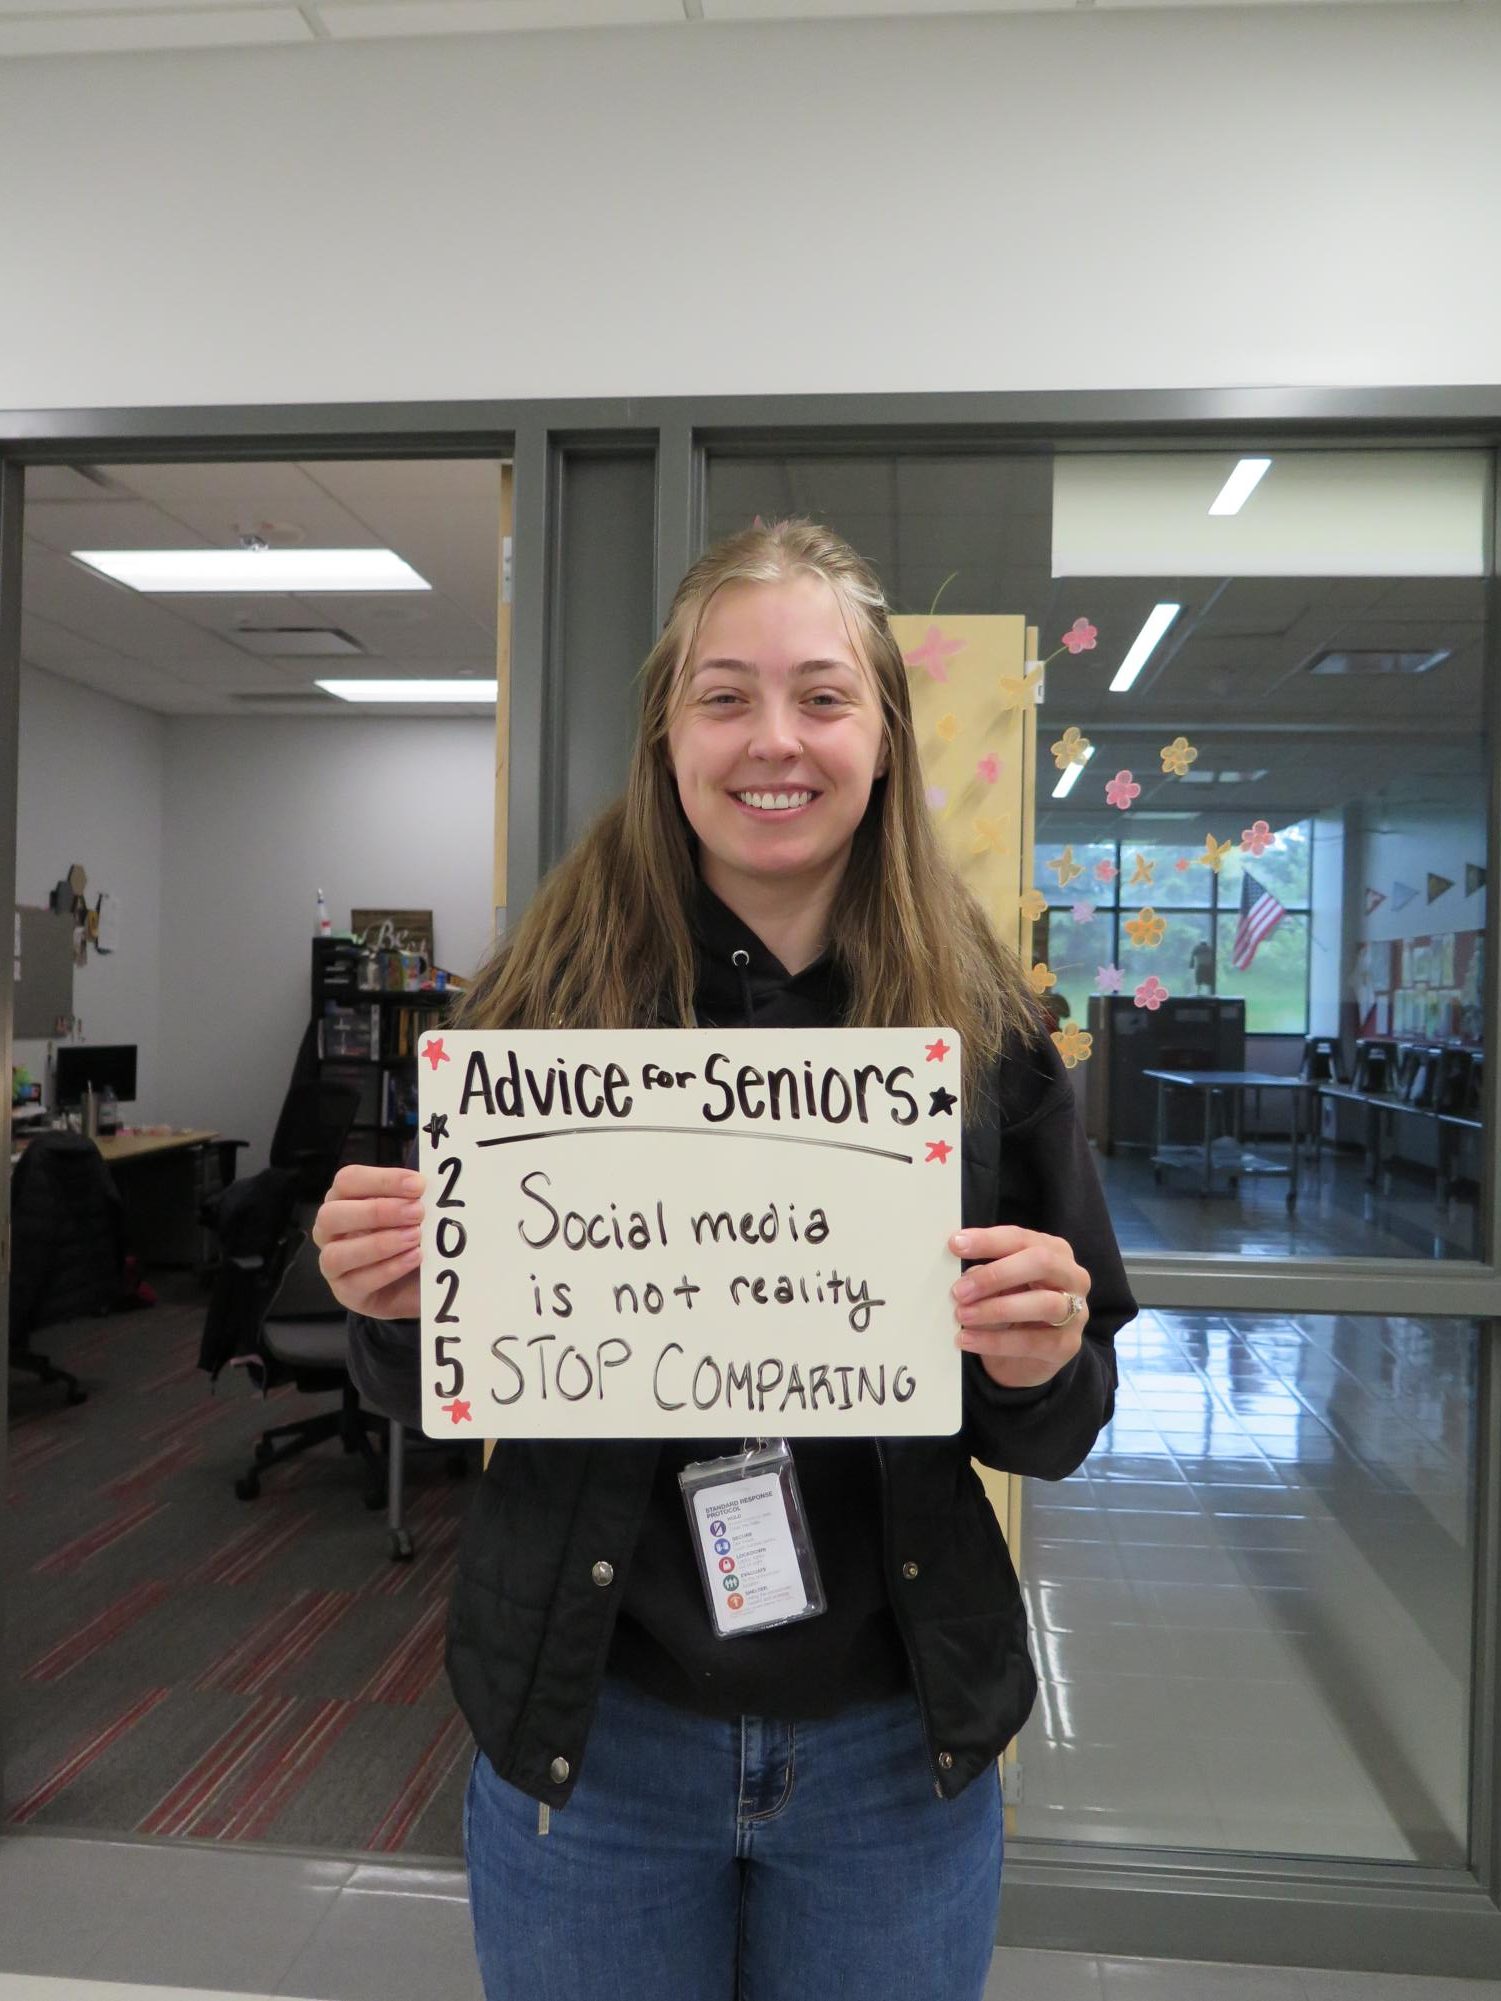 Advice for Seniors
2025
Social media
is not reality
STOP COMPARING
STANDARD RESPONSE
PROTOCOL
HOLD
SECURE
LOCKDOWN
EVACUATE
SHELTER
Be